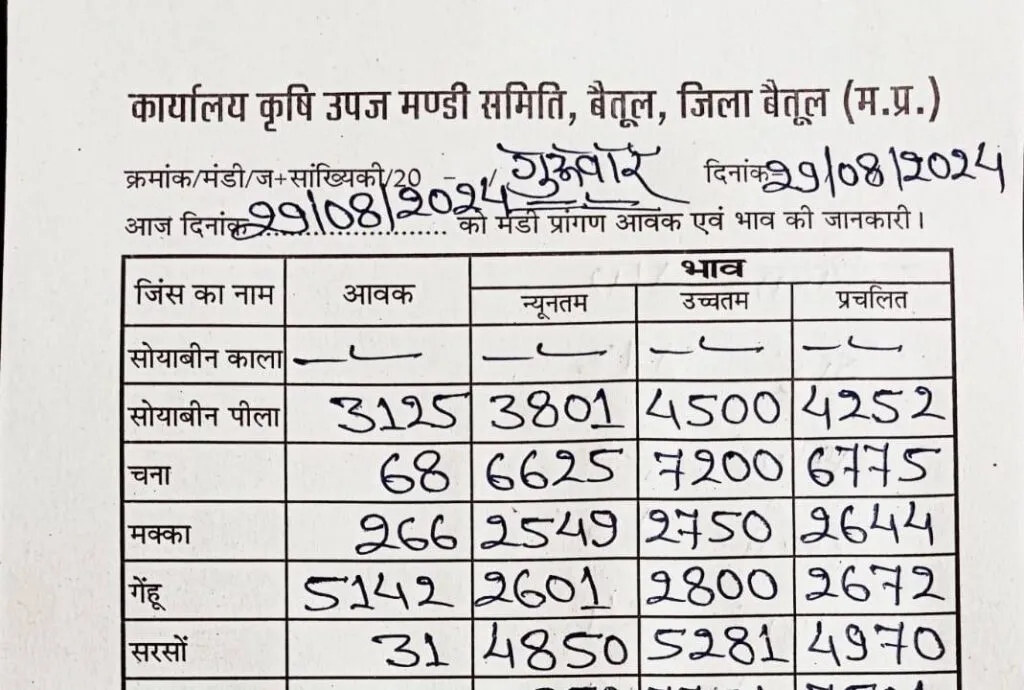 कार्यालय कृषि उपज मण्डी समिति, बैतूल, जिला बैतूल (म.प्र.)
क्रमांक/मंडी/ज+सांख्यिकी/20 - / गुरूवार दिनांक 29/08/2024
आज दिनांक 29/08/2024 को मंडी प्रांगण आवक एवं भाव की जानकारी।
जिंस का नाम आवक भाव
न्यूनतम उच्चतम प्रचलित
सोयाबीन काला — — — —
सोयाबीन पीला 3125 3801 4500 4252
चना 68 6625 7200 6775
मक्का 266 2549 2750 2644
गेंहू 5142 2601 2800 2672
सरसों 31 4850 5281 4970